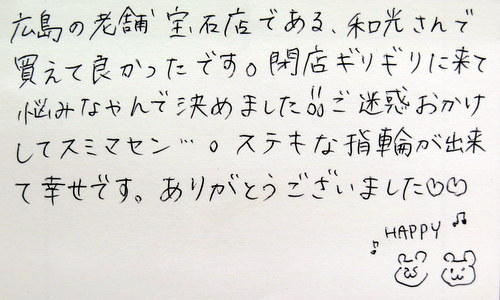 広島の老舗宝石店である、和光さんで
買えて良かったです。閉店ギリギリに来て
悩みなやんで決めました!!ご迷惑おかけ
してスミマセン…。ステキな指輪が出来
て幸せです。ありがとうございました♡♡
♪HAPPY♫